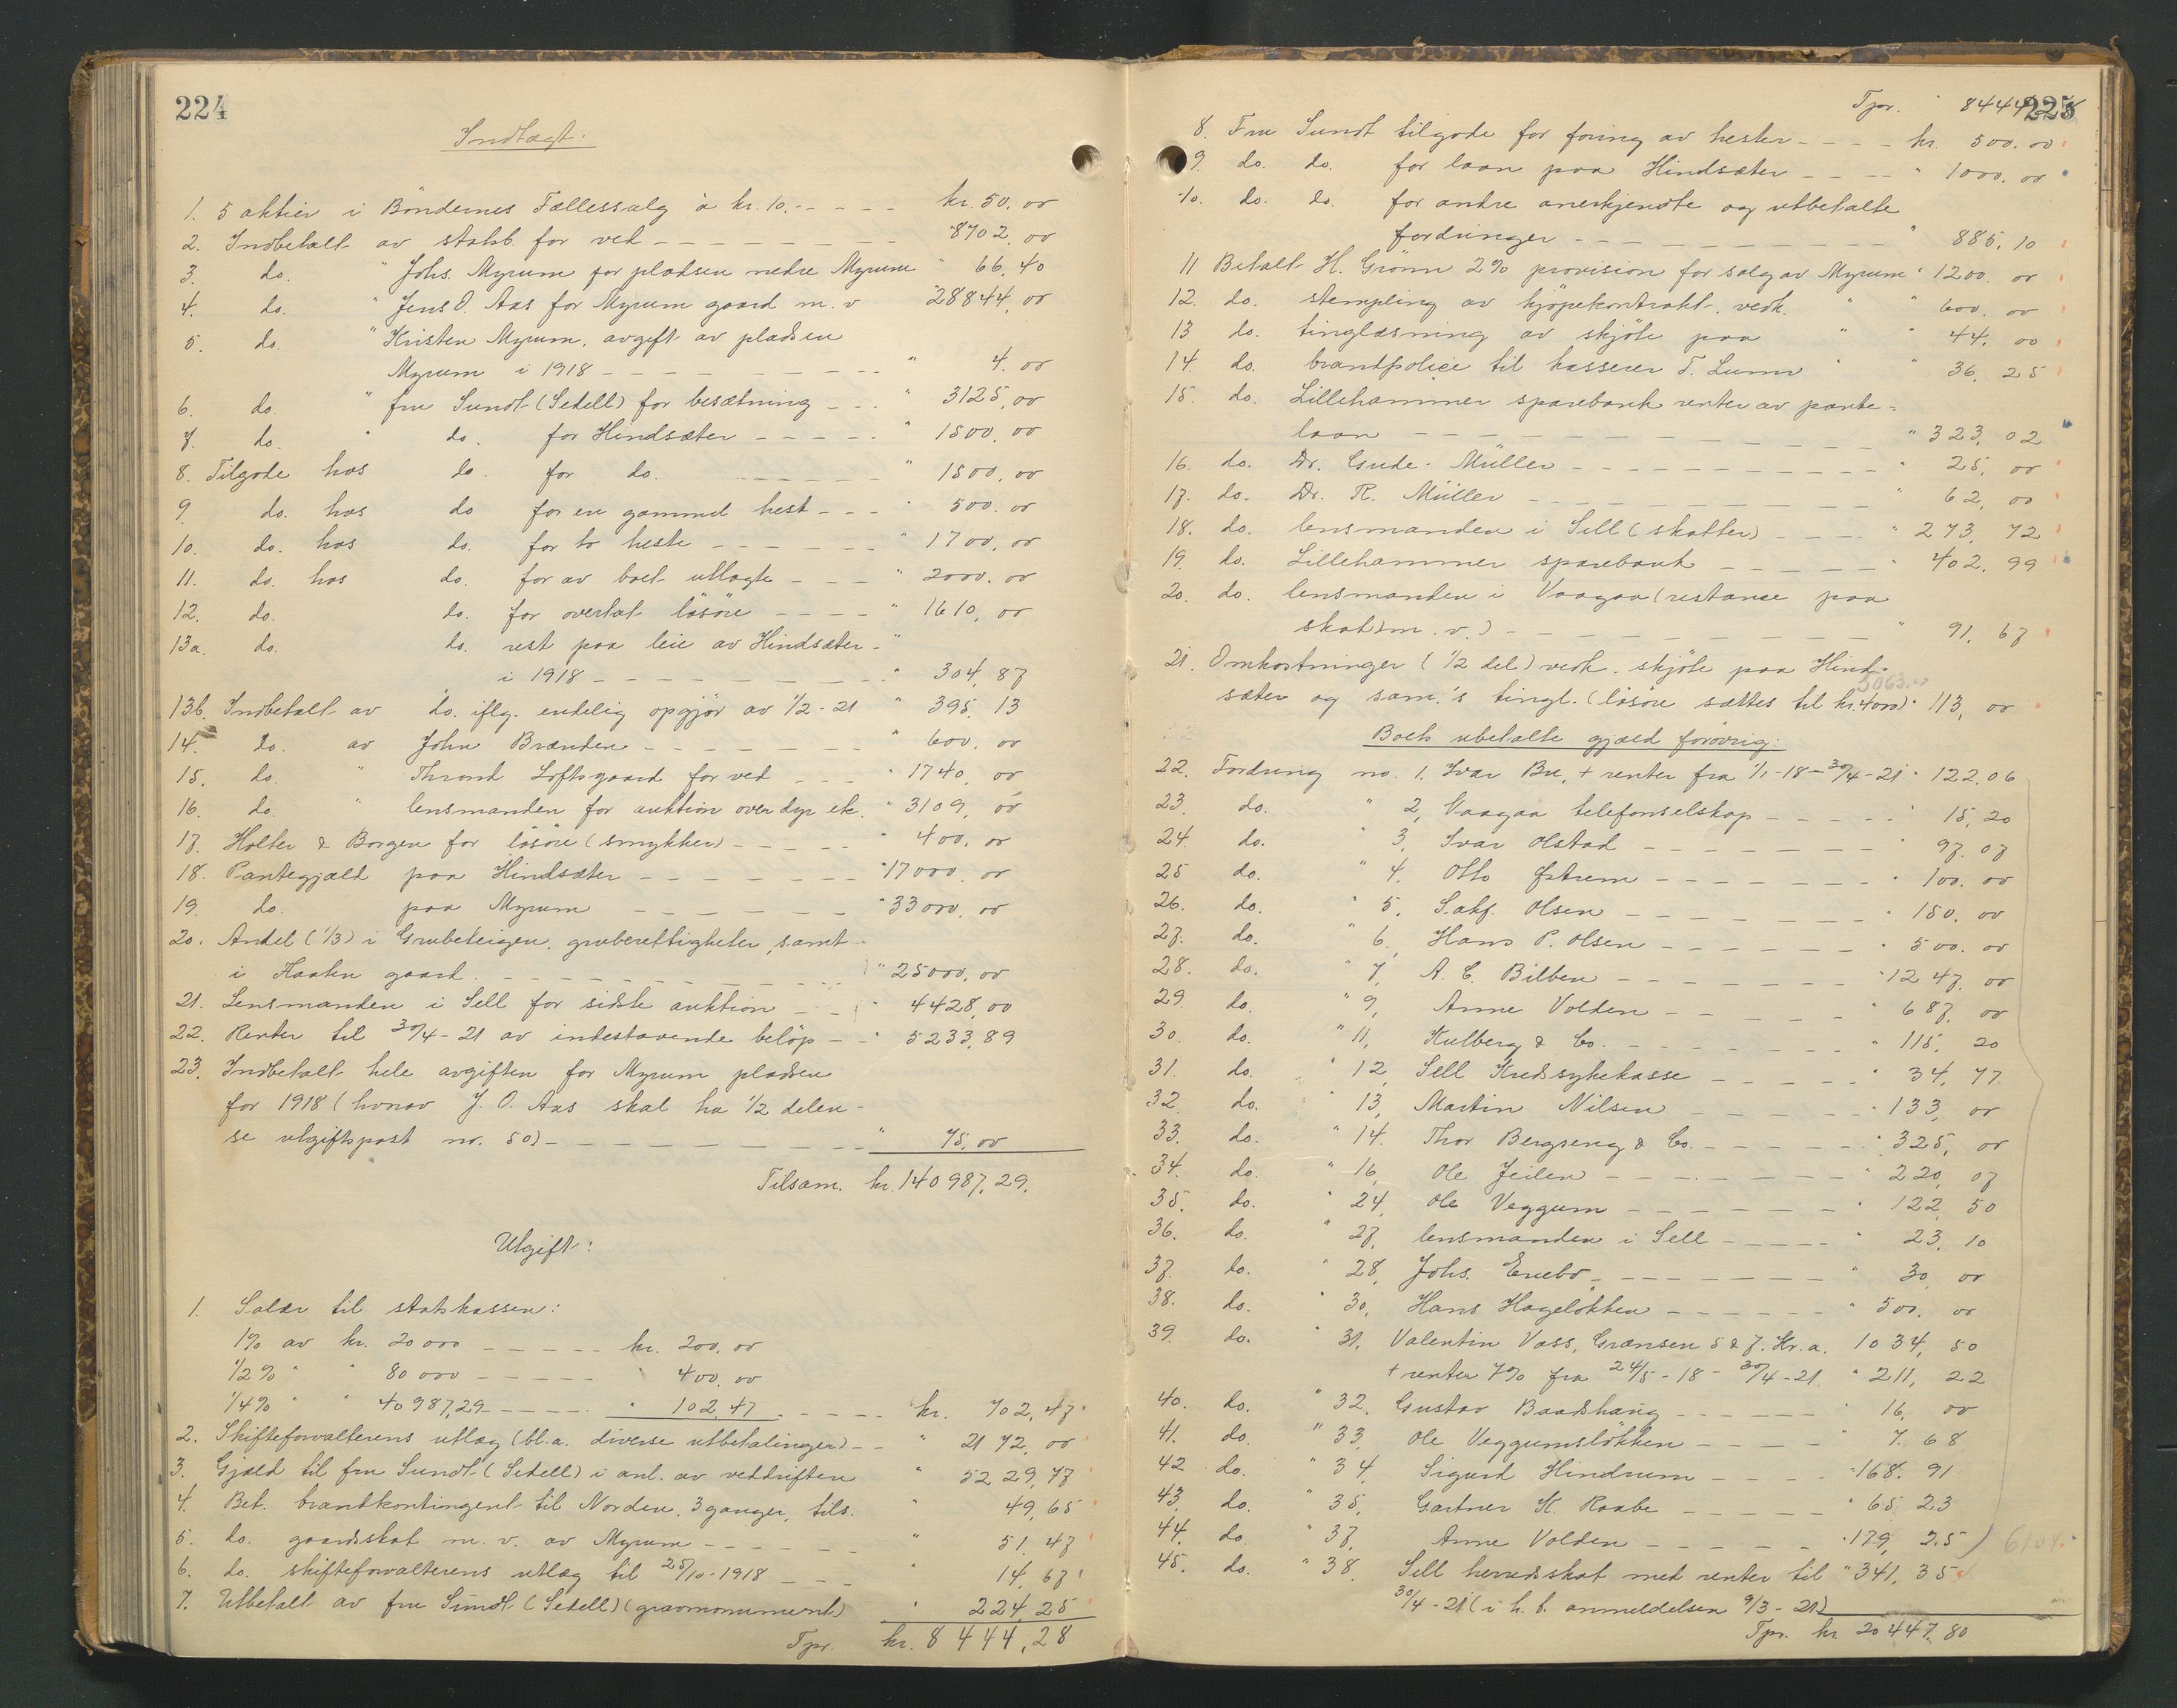 224
Indtægt:
1. 5 aktier i Bøndernes Fællessalg à kr. 10. - - - - kr. 50. 00
2. Indbetalt av statsb. for ved - - - - - - - " 8702. 00
3. do. " Johs. Myrum for pladsen nedre Myrum " 66. 40
4. do. " Jens O. Aas for Myrum gaard m. v " 28844, 00
5. do. " Kristen Myrum, avgift av pladsen
Myrum i 1918 - - - - - - - - - " 4. 00
6. do. " fru Sundt (Sedell) for besætning - - - " 3125, 00
7. do. " do. for Hindsæter - - - - - " 1500, 00
8. Tilgode hos do. for do. - - - - - - " 1500, 00
9. do. hos do for en gammel hest - - - " 500. 00
10. do. hos do. for to heste - - - - - - " 1700, 00
11. do. hos do. for av boet utlagte - - - " 2000. 00
12. do. do. for overtat løsøre - - - - " 1610, 00
13a. do. do. rest paa leie av Hindsæter - "
i 1918 - - - - - - - - - " 304, 87
13b. Indbetalt av do. iflg. endelig opgjør av 1/2 - 21 " 395, 13
14. do. av John Brænden - - - - - - - " 600, 00
15. do. " Thrond Loftsgaard for ved - - - " 1740, 00
16. do. " lensmanden for auktion over dyr etc. " 3109, 00
17. Holter & Borgen for løsøre (smykker) - - - - - " 400, 00
18. Pantegjæld paa Hindsæter - - - - - - - " 17000, 00
19. do. paa Myrum - - - - - - - " 33000, 00
20. Andel (1/3) i Grubeteigen, gruberettigheter, samt
i Haaken gaard. - - - - - - - - - - " 25000, 00
21. Lensmanden i Sell for sidste auktion - - - " 4428, 00
22. Renter til 30/4 - 21 av indestaaende beløp - - " 5233, 89
23. Indbetalt hele avgiften for Myrum pladsen
for 1918 (hvorav J. O. Aas skal ha 1/2 delen -
se utgiftspost no. 50) - - - - - - - - - " 75, 00
Tilsam. kr. 140987, 29.
Utgift:
1. Salær til statskassen:
1% av kr. 20000 - - - - - kr. 200, 00
1/2% " " 80000 - - - - - " 400, 00
1/4% " " 40987,29 - - - - " 102, 47 - - - - - kr. 702, 47
2. Skifteforvalterens utlæg (bl. a. diverse utbetalinger) - - " 2172, 00
3. Gjæld til fru Sundt (Sedell) i anl. av veddriften " 5229, 77
4. Bet. brandkontingent til Norden. 3 ganger, tils. " 49, 65
5. do. gaardsskat m. v. av Myrum - - - - - - " 51, 47
6. do. skifteforvalterens utlæg til 25/10 - 1918 - - - " 14, 67
7. Utbetalt av fru Sundt (Sedell) (gravmonument) " 224, 25
Tpr. kr. 8444, 28
225
Tpr. " 8444
8. Fru Sundt tilgode for foring av hester - - - - kr. 500. 00
9. do. do. for laan paa Hindsæter - - - - " 1000. 00
10. do. do. for andre anerkjendte og utbetalte
fordringer - - - - - - - - - - " 885, 10
11 Betalt H. Grønn 2% provision for salg av Myrum " 1200. 00
12. do. stempling av kjøpekontrakt vedk. " " 600. 00
13 do. tinglæsning av skjøte paa " " 44, 00
14. do. brandpolice til kasserer T. Lunn " " 36, 25
15. do. Lillehammer sparebank renter av pante-
laan - - - - - - - - - - - - - " 323, 02
16. do. Dr. Gude-Müller - - - - - - - - - - " 25, 00
17. do. Dr. R. Müller - - - - - - - - - - " 62, 00
18. do. lensmanden i Sell (skatter) - - - - " 273, 72
19. do. Lillehammer sparebank - - - - - " 402, 99
20. do. lensmanden i Vaagaa (restance paa
skat m. v.) - - - - - - - - - - - " 91, 67
21. Omkostninger (1/2 del) vedk. skjøte paa Hind-
5063.
sæter og sam.'s tingl. (løsøre sættes til kr. 4000) " 113, 00
Boets ubetalte gjæld forøvrig:
22. Fordring no. 1. Ivar Bu, + renter fra 1/1 - 18 - 30/4 - 21 " 122.06
23. do. " 2, Vaagaa telefonselskap - - - - - " 15, 20
24. do. " 3, Ivar Olstad - - - - - - - " 97. 07
25 do. " 4. Otto Østrem - - - - - - - " 100. 00
26. do. " 5, S. akf. Olsen - - - - - - - " 150. 00
27. do. " 6, Hans P. Olsen - - - - - - - " 500. 00
28. do. " 7, A. C. Bilben - - - - - - - " 1247. 00
29. do. " 9, Anne Volden - - - - - - " 687. 00
30. do. " 11, Kulberg & Co. - - - - - - - " 115, 20
31. do. " 12, Sell Kredssykekasse - - - - - " 34, 77
32. do. " 13, Martin Nilsen - - - - - - " 133, 00
33. do. " 14. Thor Bergseng & Co. - - - - - " 325, 00
34. do. " 16, Ole Jeilen - - - - - - - " 220, 07
35. do. " 24, Ole Veggum - - - - - - - " 122, 50
36. do. " 27, lensmanden i Sell - - - - - " 23, 10
37. do. " 28, Johs. Enebo - - - - - - - " 30, 00
38. do. " 30, Hans Hageløkken - - - - - - " 500, 00
39. do. " 31, Valentin Vass, Grænsen 5 & 7. Kr.a. 1034, 50
+ renter 7% fra 24/5 - 18 - 30/4 - 21. " 211, 22
40. do. " 32. Gustav Baadshaug - - - - - - " 16, 00
41. do. " 33, Ole Veggumsløkken - - - - - " 7. 68
42 do. " 34, Sigurd Hindrum - - - - " 168. 91
43, do. " 35, Gartner K. Raabe - - - - - " 65. 23
44. do " 37, Anne Volden - - - - - " 179, 25
45. do. " 38, Sell herredsskat med renter til " 341, 35
30/4 - 21 (i h. t. anmeldelsen 9/3 - 21)
Tpr. kr. 20447. 80